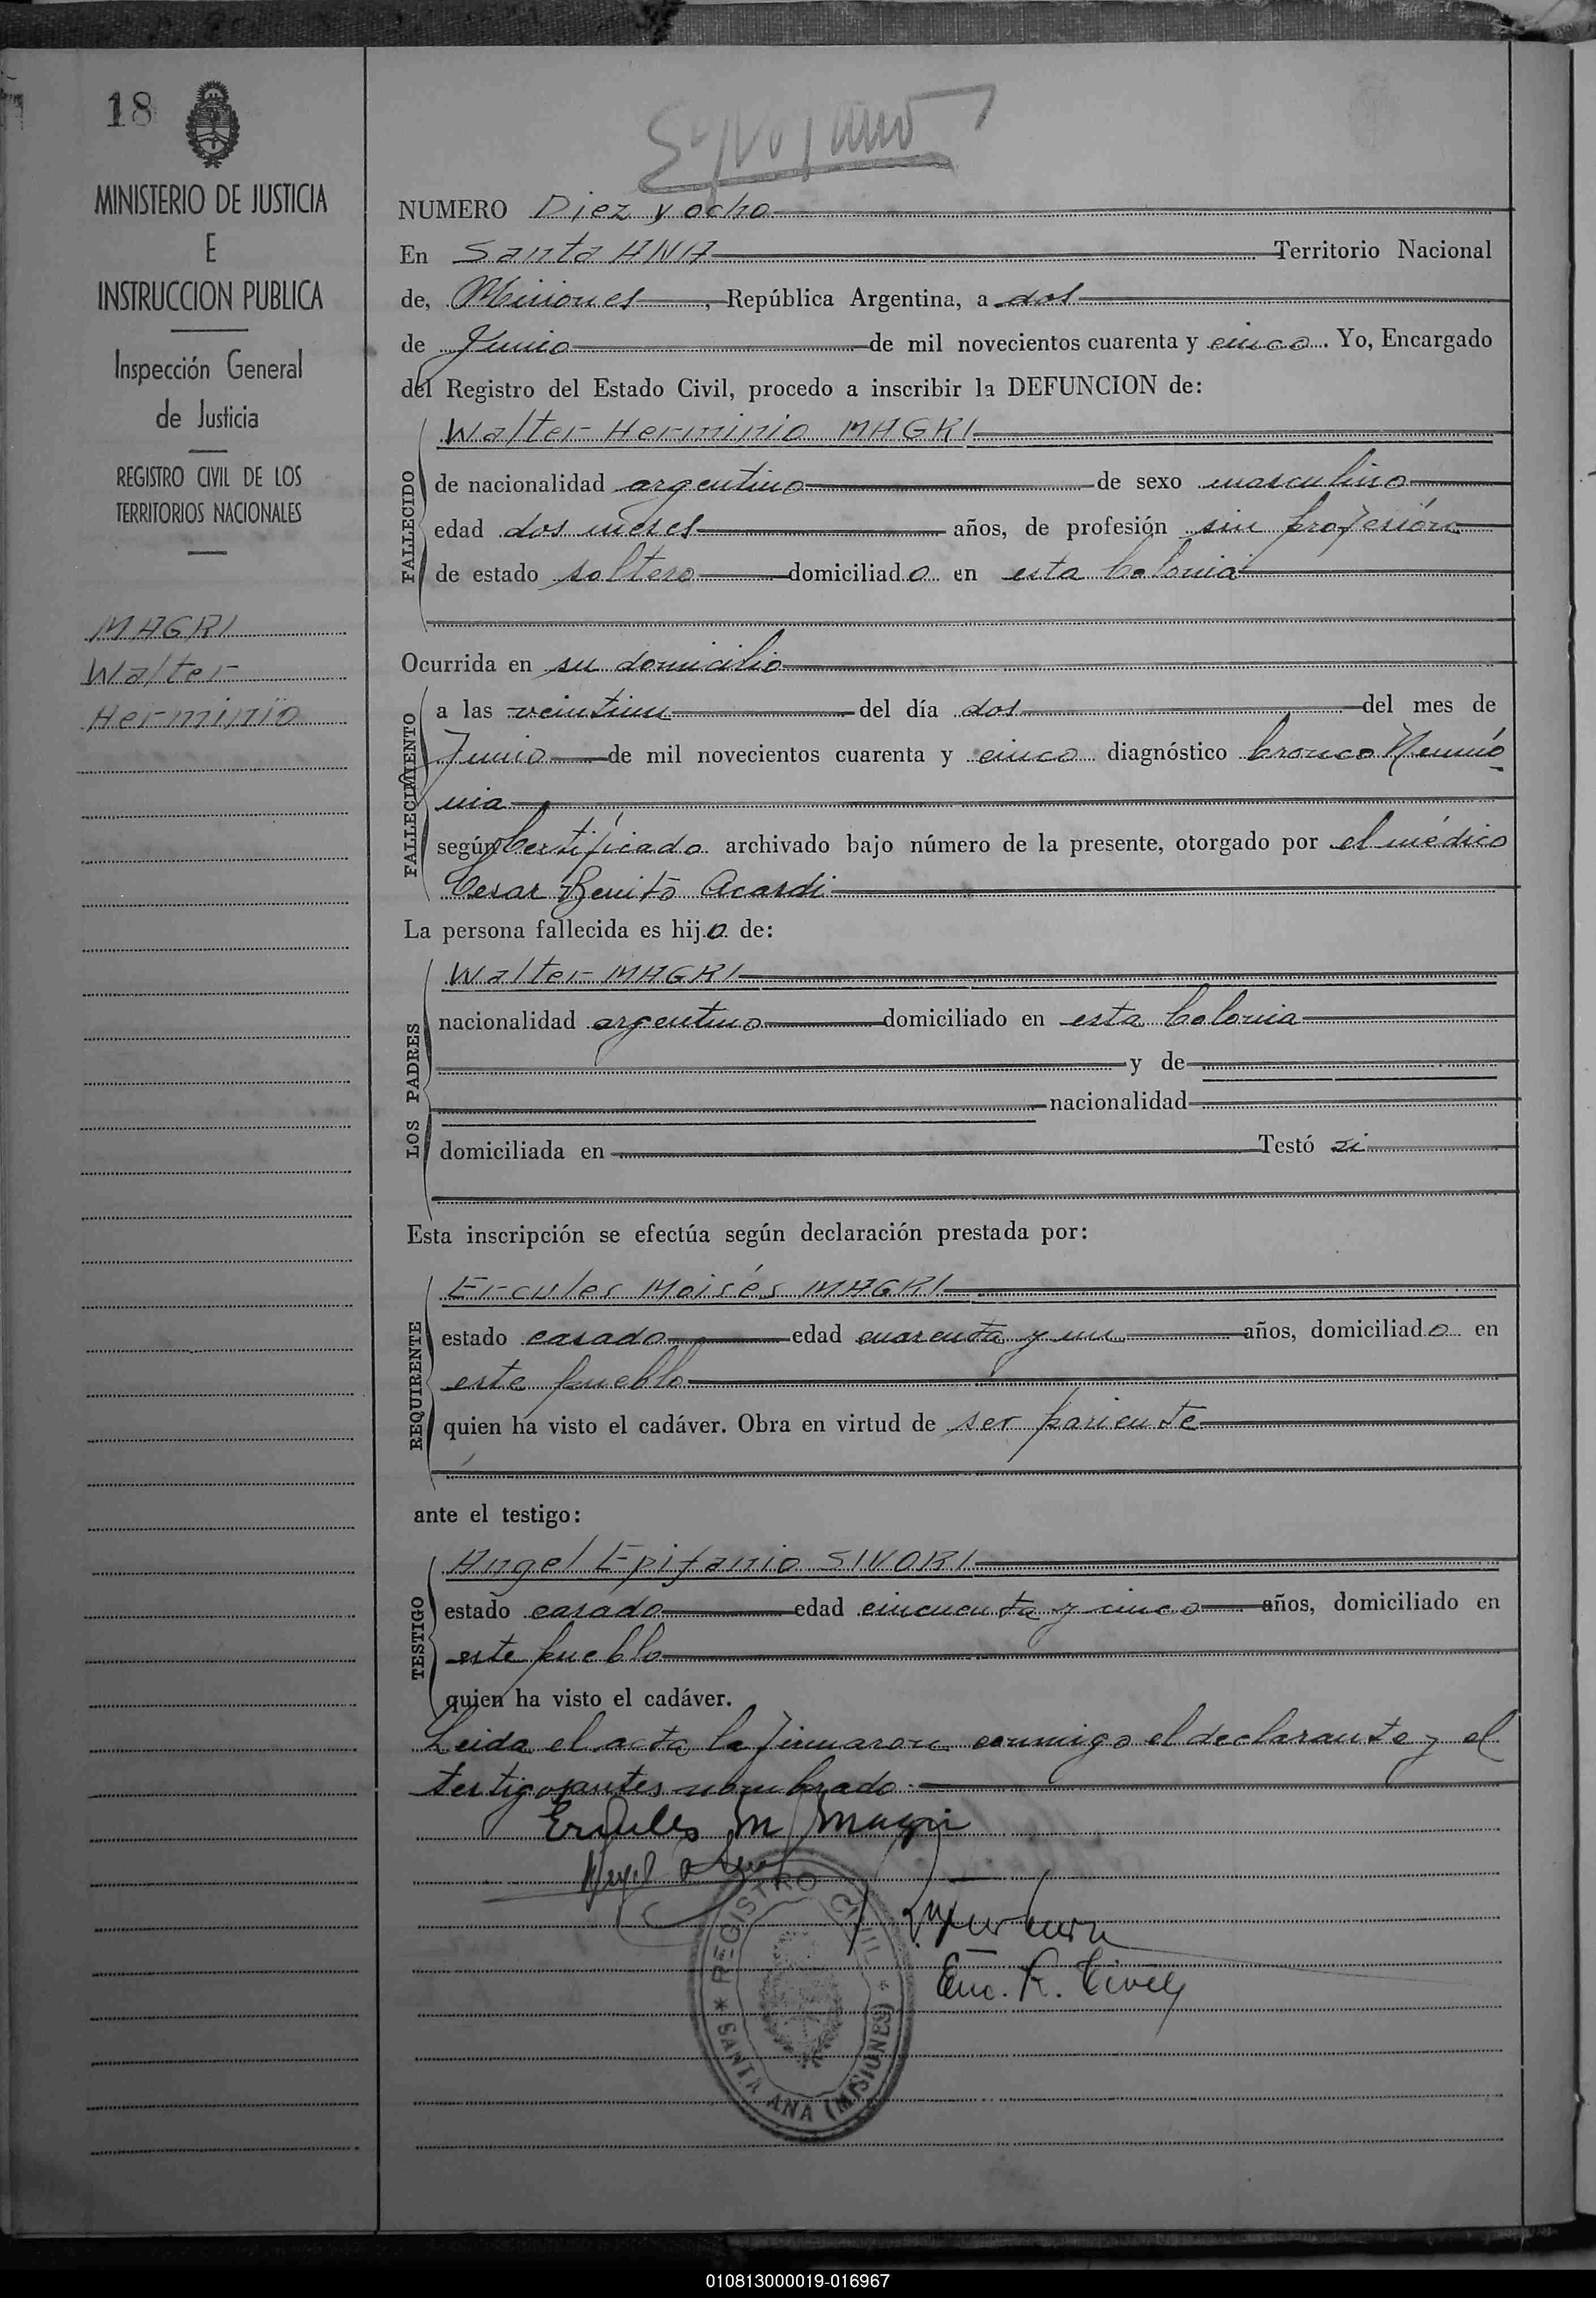 18
MINISTERIO DE JUSTICIA
E
INSTRUCCION PUBLICA
Inspección General
de Justicia
REGISTRO CIVIL DE LOS
TERRITORIOS NACIONALES
MAGRI
Walter
Herminio
NUMERO Diez y ocho
En Santa ANA Territorio Nacional
de, Misiones, República Argentina, a dos
de Junio de mil novecientos cuarenta y cinco. Yo, Encargado
del Registro del Estado Civil, procedo a inscribir la DEFUNCION de:
FALLECIDO
Walter Herminio MAGRI
de nacionalidad argentino de sexo masculino
edad dos meses años, de profesión sin profesión
de estado soltero domiciliado en esta Colonia
Ocurrida en su domicilio
FALLECIMIENTO
a las veintiun del día dos del mes de
Junio de mil novecientos cuarenta y cinco diagnóstico bronco Neumo
nia
según Certificado archivado bajo número de la presente, otorgado por el médico
Cesar Benito Acardi
La persona fallecida es hijo de:
LOS PADRES
Walter MAGRI
nacionalidad argentino domiciliado en esta Colonia
y de
nacionalidad
domiciliada en Testó si
Esta inscripción se efectúa según declaración prestada por:
REQUIRENTE
Ercules Moisés MAGRI
estado casado edad cuarenta y un años, domiciliado en
este pueblo
quien ha visto el cadáver. Obra en virtud de ser pariente
ante el testigo:
TESTIGO
Angel Epifanio SIVORI
estado casado edad cincuenta y cinco años, domiciliado en
este pueblo
quien ha visto el cadáver.
Leida el acta la firmaron conmigo el declarante y el
testigo antes nombrado.
Ercules M Magri
Enc. R. Civil
REGISTRO CIVIL
* SANTA ANA (MISIONES) *
010813000019-016967